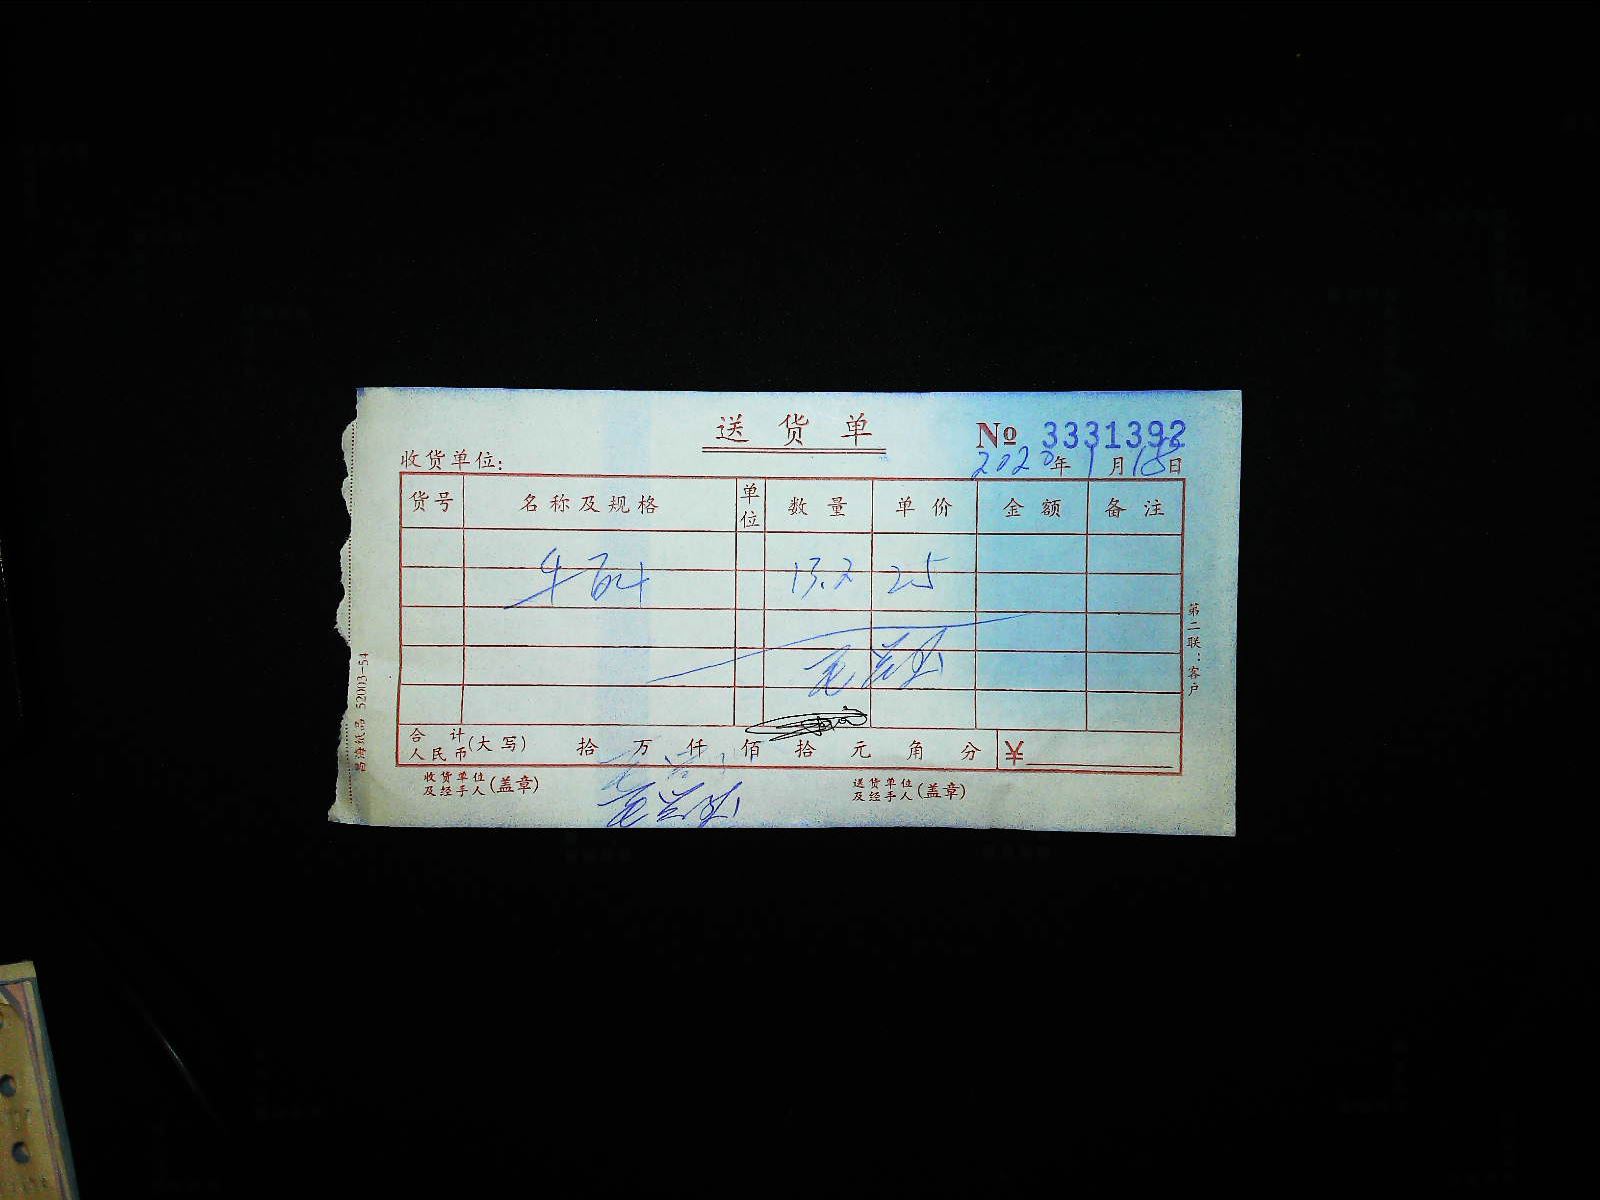 送货单
No 3331392
收货单位:
2020年1月15日
货号 名称及规格 单位 数量 单价 金额 备注
13.2 25
合计人民币(大写) 拾 万 仟 佰 拾 元 角 分 ¥
收货单位及经手人(盖章)
送货单位及经手人(盖章)
第二联:客户
昌海纸品 52003-54